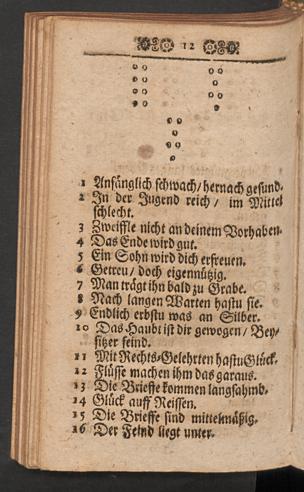 12
1 Anfänglich schwach/ hernach gesund.
2 In der Jugend reich/ im Mittel
schlecht.
3 Zweiffle nicht an deinem Vorhaben.
4 Das Ende wird gut.
5 Ein Sohn wird dich erfreuen.
6 Getreu/ doch eigennützig.
7 Man trägt ihn bald zu Grabe.
8 Nach langen Warten hastu sie.
9 Endlich erbstu was an Silber.
10 Das Haubt ist dir gewogen/ Bey-
sitzer feind.
11 Mit Rechts-Gelehrten hastu Glück.
12 Flüsse machen ihm das garaus.
13 Die Brieffe kommen langsahmb.
14 Glück auff Reissen.
15 Die Brieffe sind mittelmäßig.
16 Der Feind liegt unter.